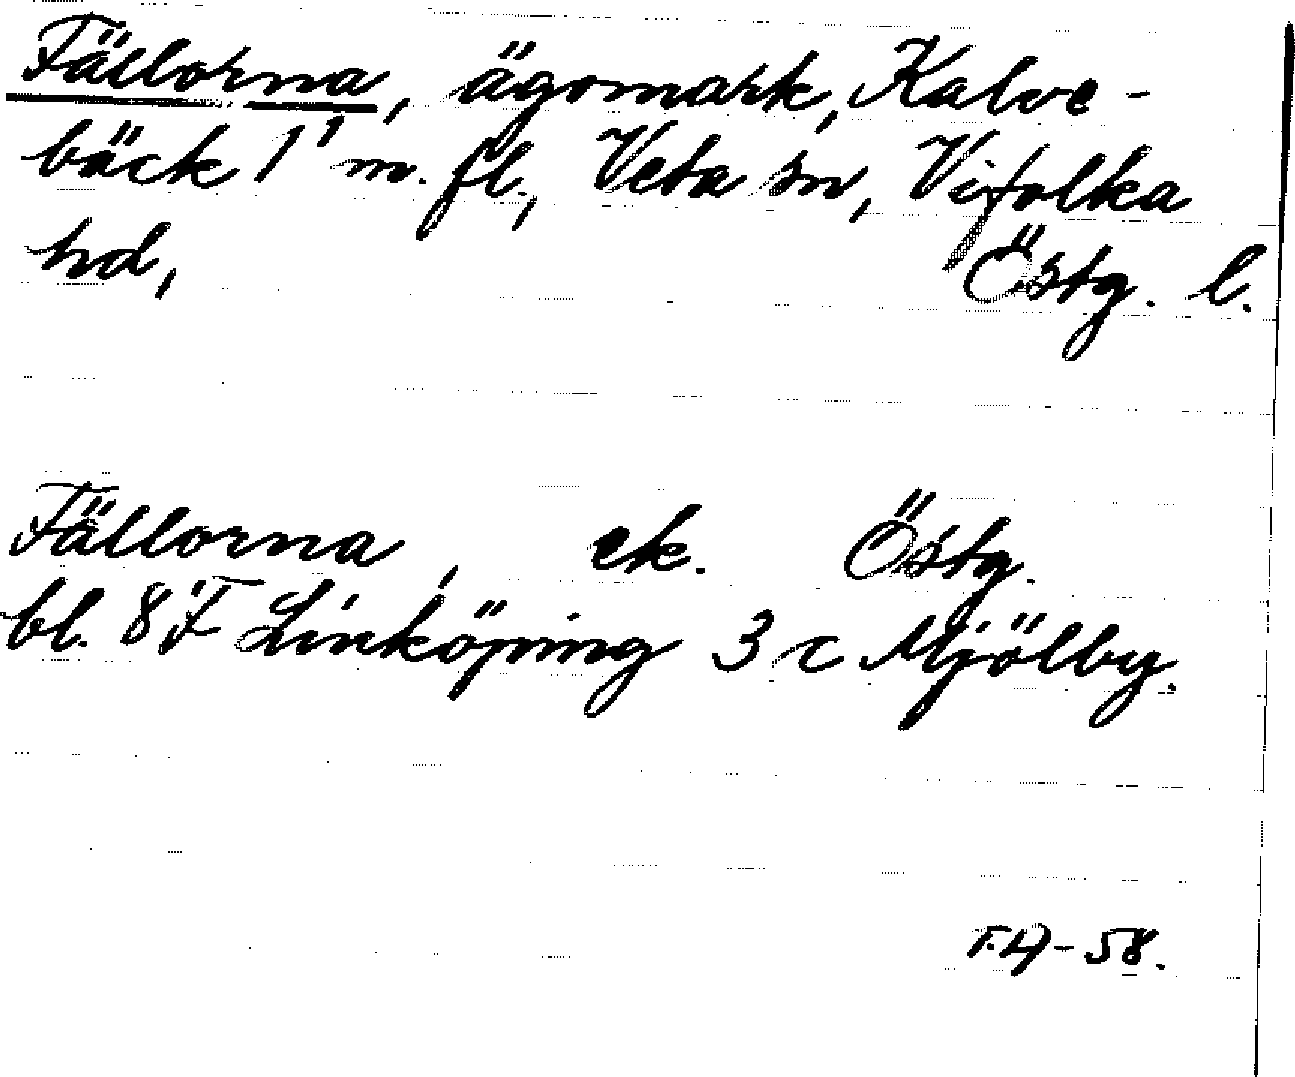 Fällorna, ägomark, Kalve-
bäck 1¹ m. fl., Veta sn, Vifolka
hd, Östg. l.
Fällorna, ek. Östg.
bl. 8 F Linköping 3 c Mjölby.
58.